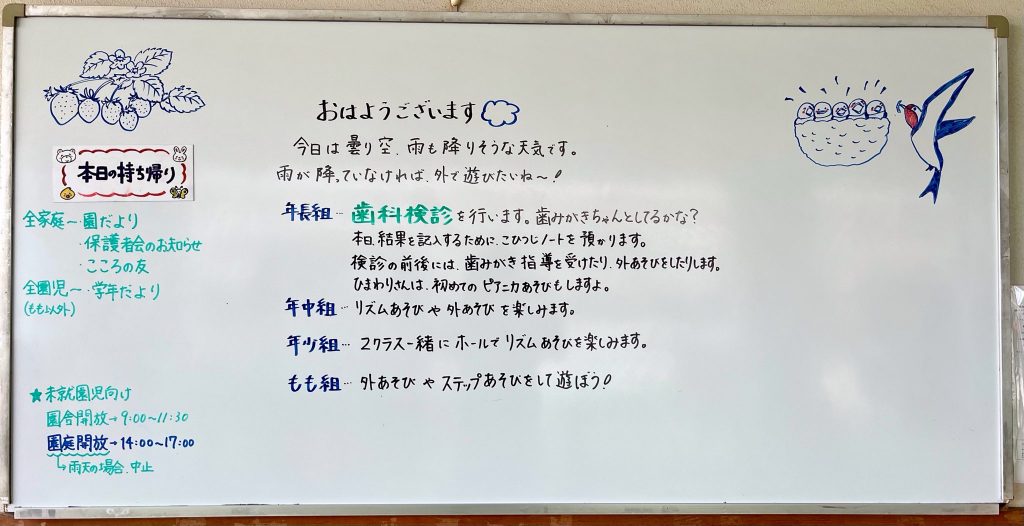 おはようございます
今日は曇り空、雨も降りそうな天気です。
雨が降っていなければ、外で遊びたいね〜!
年長組… 歯科検診を行います。歯みがきちゃんとしてるかな?
本日、結果を記入するために、こひつじノートを預かります。
検診の前後には、歯みがき指導を受けたり、外あそびをしたりします。
ひまわりさんは、初めてのピアニカあそびもしますよ。
年中組… リズムあそびや外あそびを楽しみます。
年少組… 2クラス一緒にホールでリズムあそびを楽しみます。
もも組… 外あそびやステップあそびをして遊ぼう!
本日の持ち帰り
全家庭〜・園だより
・保護者会のお知らせ
・こころの友
全園児〜・学年だより
(もも以外)
★未就園児向け
園舎開放→9:00〜11:30
園庭開放→14:00〜17:00
→雨天の場合、中止